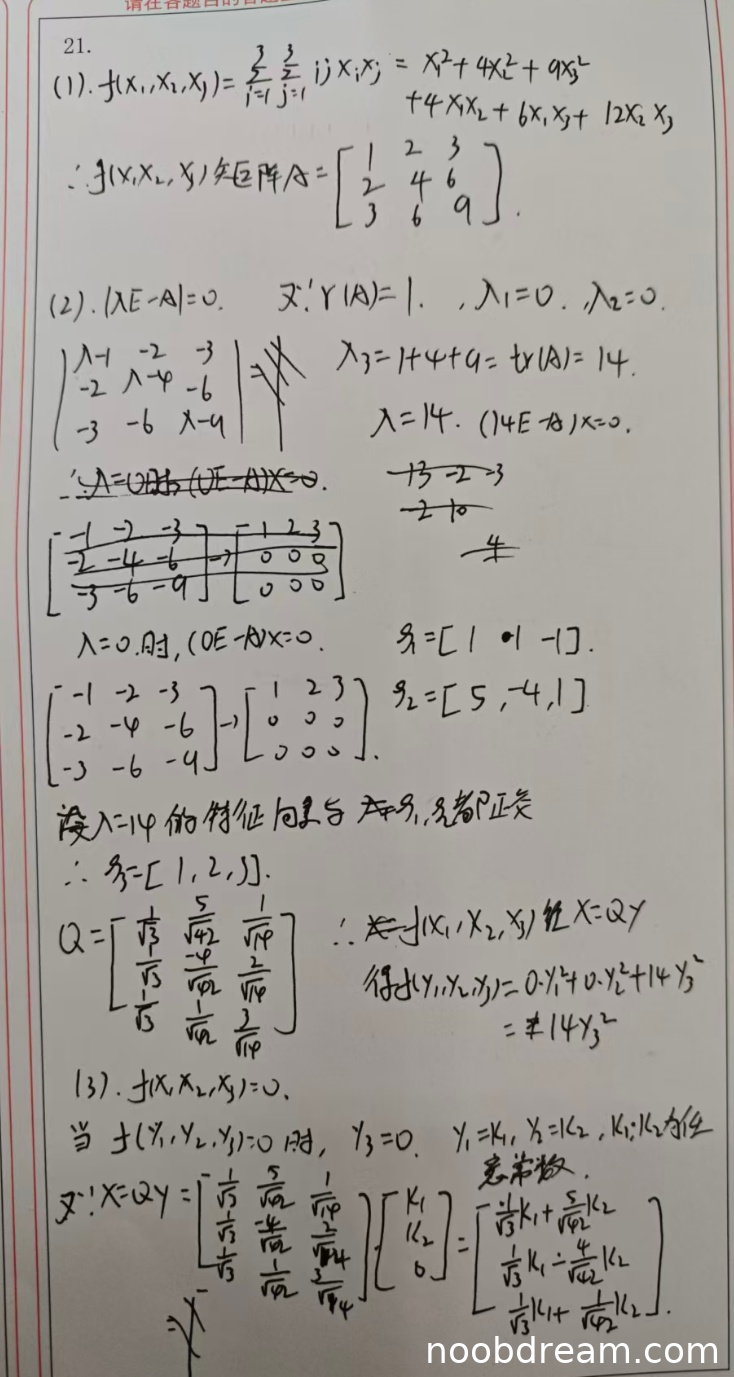 请在各题目的答题
21.
(1). f(x₁,x₂,x₃)= ∑³ᵢ₌₁ ∑³ⱼ₌₁ ij xᵢxⱼ = x₁²+4x₂²+9x₃²
+4x₁x₂+6x₁x₃+12x₂x₃
∴f(x₁x₂,x₃)矩阵A=[1 2 3
2 4 6
3 6 9].
(2). |λE-A|=0. 又∵r(A)=1. ,λ₁=0. ,λ₂=0.
|λ-1 -2 -3
-2 λ-4 -6
-3 -6 λ-9| =
λ₃=1+4+9=tr(A)=14.
λ=14. (14E-A)x=0.
∴λ=0时,(0E-A)x=0.
13 -2 -3
-2 10
4
[-1 -2 -3
-2 -4 -6
-3 -6 -9]→[1 2 3
0 0 0
0 0 0]
λ=0.时,(0E-A)x=0.
ξ₁=[1 1 -1].
[-1 -2 -3
-2 -4 -6
-3 -6 -9]→[1 2 3
0 0 0
0 0 0].
ξ₂=[5,-4,1]
λ=14的特征向量与ξ₁,ξ₂都正交
∴ξ₃=[1,2,3].
Q=[1/√3 5/√42 1/√14
1/√3 -4/√42 2/√14
1/√3 1/√42 3/√14]
∴f(x₁,x₂,x₃)经X=QY
得f(y₁,y₂,y₃)=0·y₁²+0·y₂²+14y₃²
=14y₃²
(3). f(x₁x₂,x₃)=0.
当f(y₁,y₂,y₃)=0时, y₃=0. y₁=k₁, y₂=k₂, k₁;k₂为任
意常数.
又∵X=QY=[1/√3 5/√42 1/√14
1/√3 -4/√42 2/√14
1/√3 1/√42 3/√14]·[k₁
k₂
0]=[1/√3k₁+5/√42k₂
1/√3k₁-4/√42k₂
1/√3k₁+1/√42k₂].
=
noobdream.com